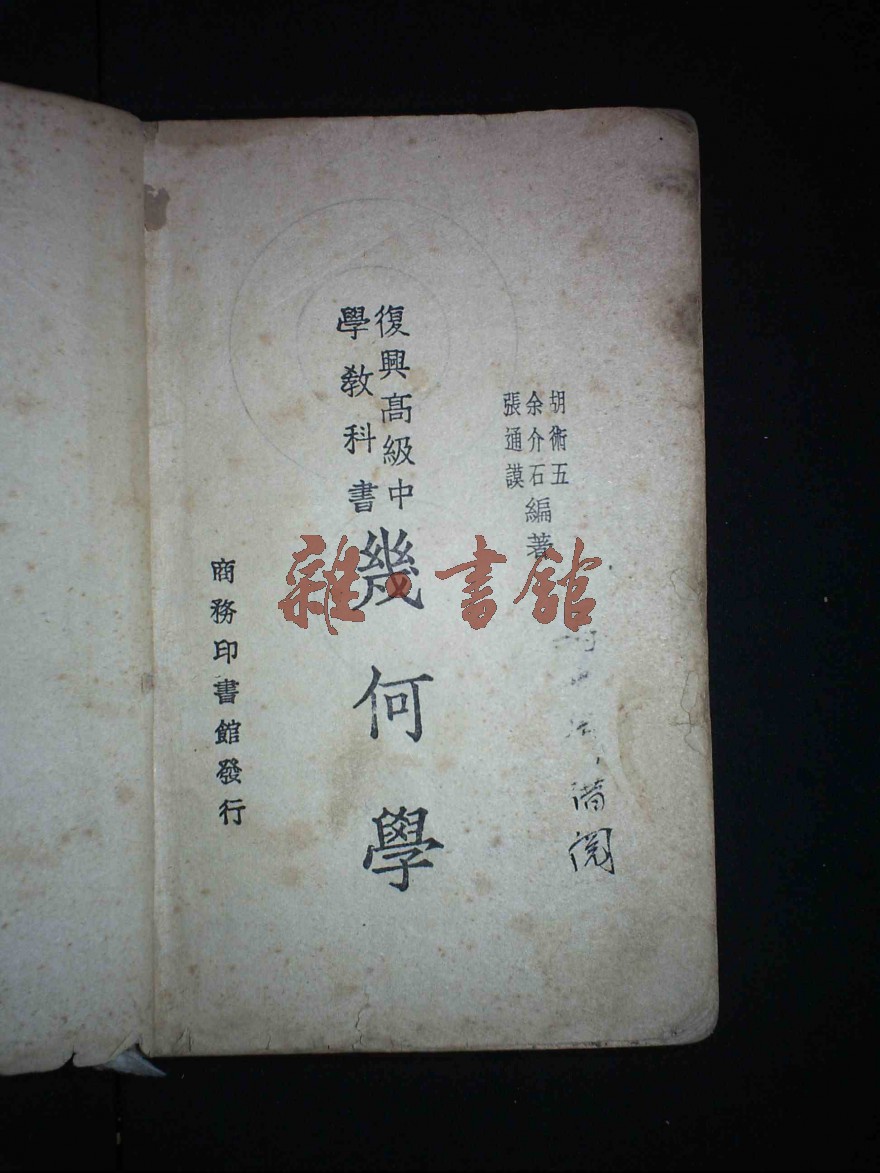 胡術五
余介石
張通謨
編著
復興高級中
學教科書
幾何學
商務印書館發行
借閱
雜書館